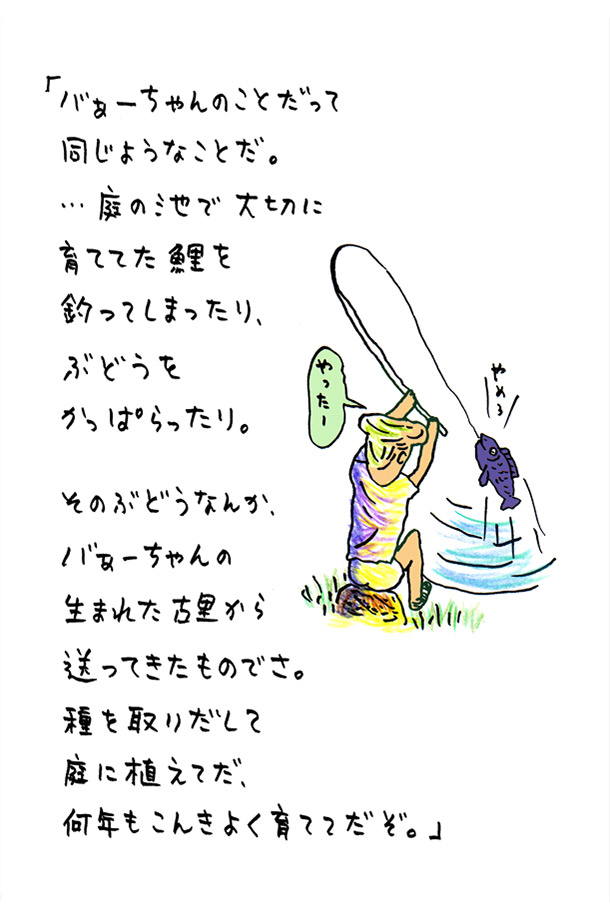 「バぁーちゃんのことだって
同じようなことだ。
…庭の池で大切に
育ててた鯉を
釣ってしまったり、
ぶどうを
かっぱらったり。
そのぶどうなんか、
バぁーちゃんの
生まれた古里から
送ってきたものでさ。
種を取りだして
庭に植えてだ、
何年もこんきよく育ててだぞ。」
やったー
やめろ